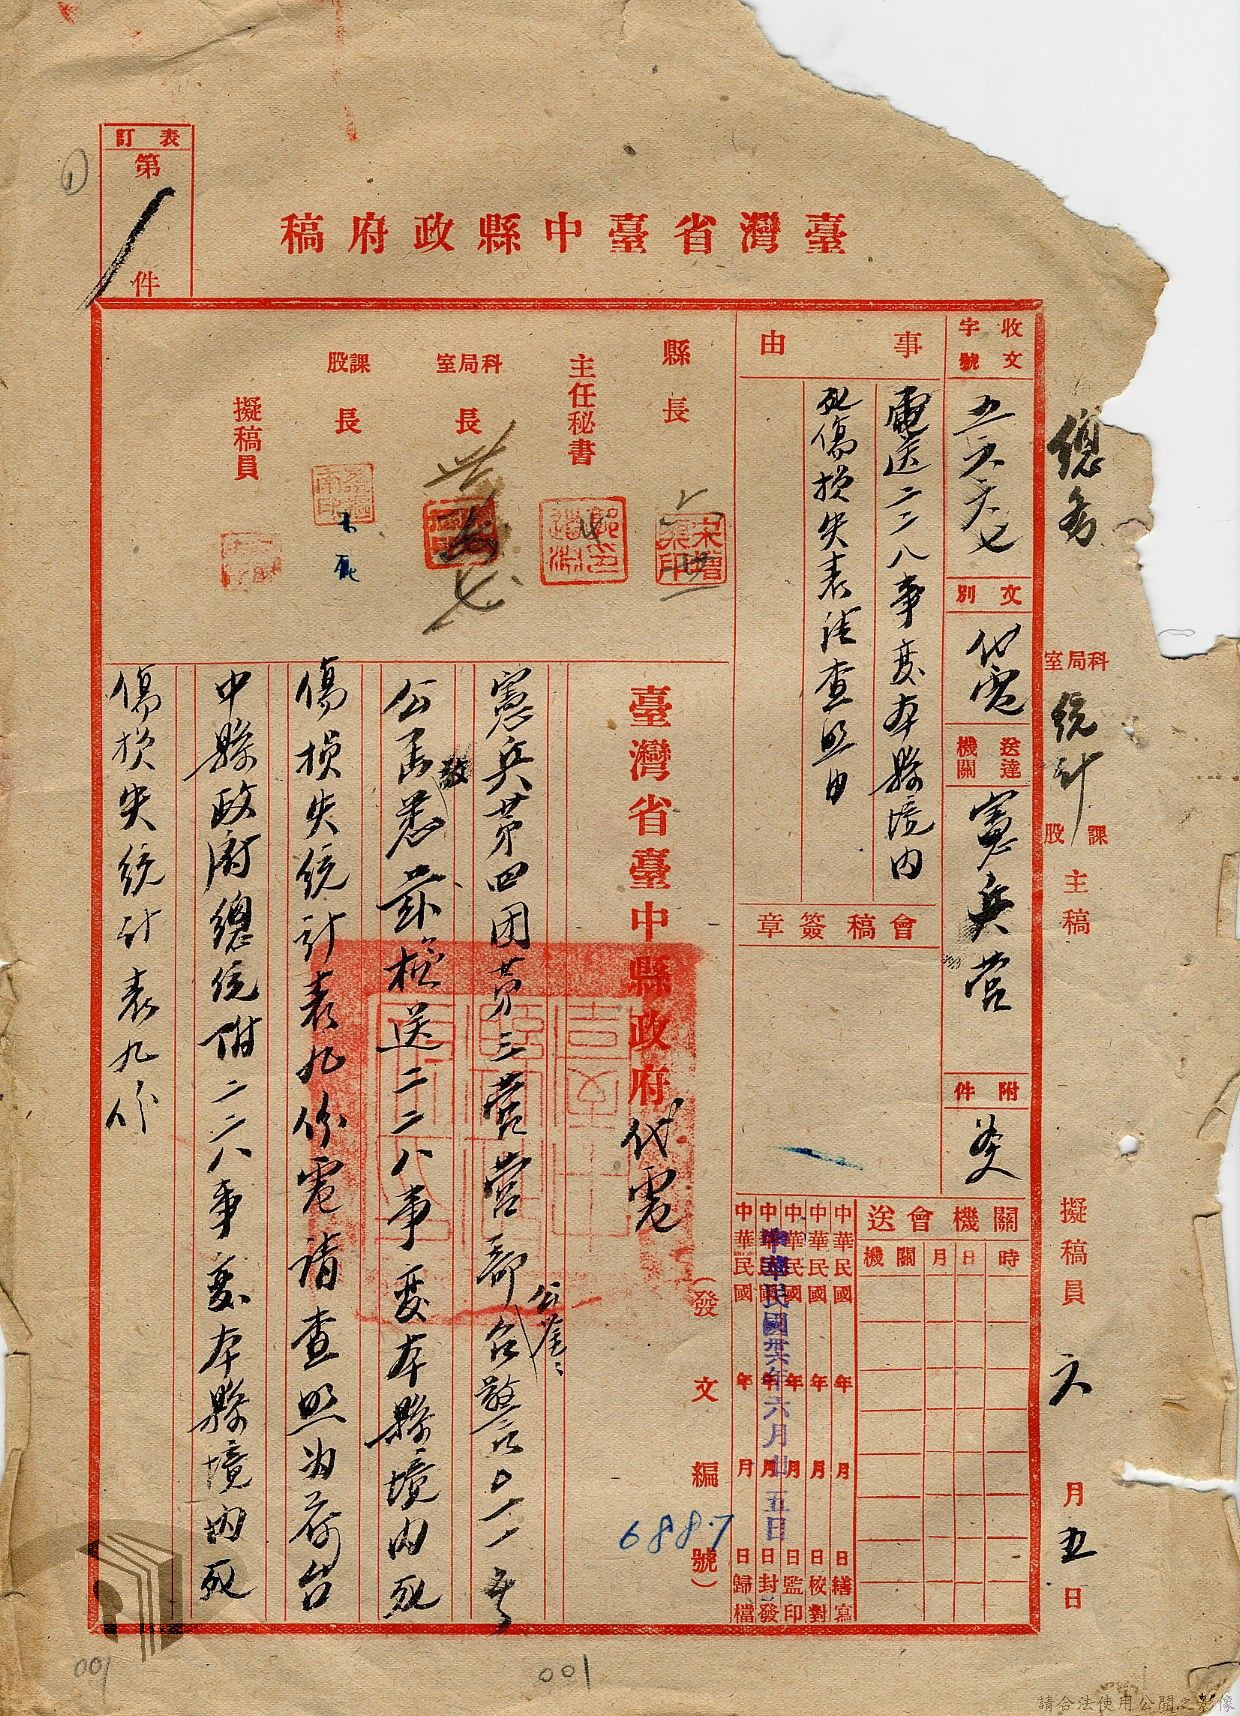 表訂
第
件
臺灣省臺中縣政府稿
總務
科局室
統計
課股
主稿
擬稿員
六月五日
收文字號
五六六七
文別
代電
送達機關
憲兵營
附件
事由
電送二二八事變本縣境內
死傷損失表請查照由
會稿簽章
關機會送
時日月關機
中華民國 年 月 日繕寫
中華民國 年 月 日校對
中華民國 年 月 日監印
中華民國 年 月 日封發
中華民國 年 月 日歸檔
中華民國卅六年六月廿五日
縣長
主任秘書
科局室長
課股長
擬稿員
臺灣省臺中縣政府代電
(發文編號)
6887
憲兵第四團第三營營部
公鑒
公函敬悉茲檢送二二八事變本縣境內死
傷損失統計表九份電請查照為荷台
中縣政府總統附二二八事變本縣境內死
傷損失統計表九份
001
001
請合法使用公開之影像